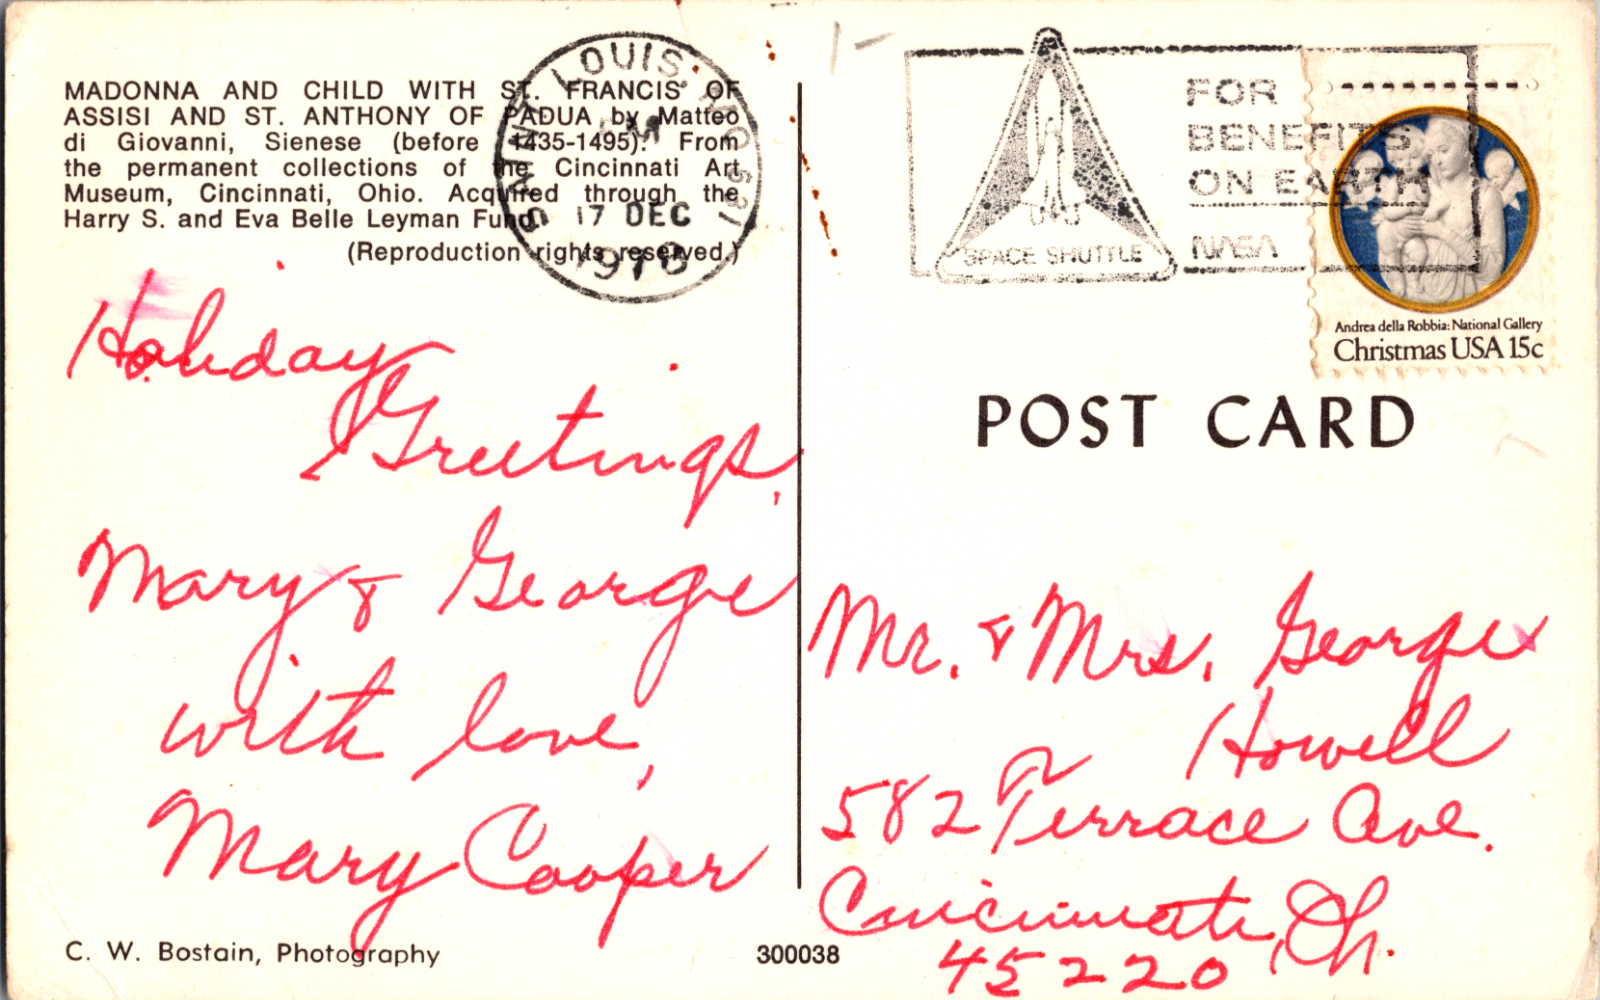 MADONNA AND CHILD WITH ST. FRANCIS OF
ASSISI AND ST. ANTHONY OF PADUA by Matteo
di Giovanni, Sienese (before 1435-1495). From
the permanent collections of the Cincinnati Art
Museum, Cincinnati, Ohio. Acquired through the
Harry S. and Eva Belle Leyman Fund.
(Reproduction rights reserved.)
SAINT LOUIS, MO 631
17 DEC
1978
Holiday
Greetings,
Mary & George
with love,
Mary Cooper
C. W. Bostain, Photography
300038
SPACE SHUTTLE
FOR
BENEFITS
ON EARTH
NASA
Andrea della Robbia: National Gallery
Christmas USA 15c
POST CARD
Mr. & Mrs. George
Howell
582 Terrace Ave.
Cincinnati, Oh.
45220